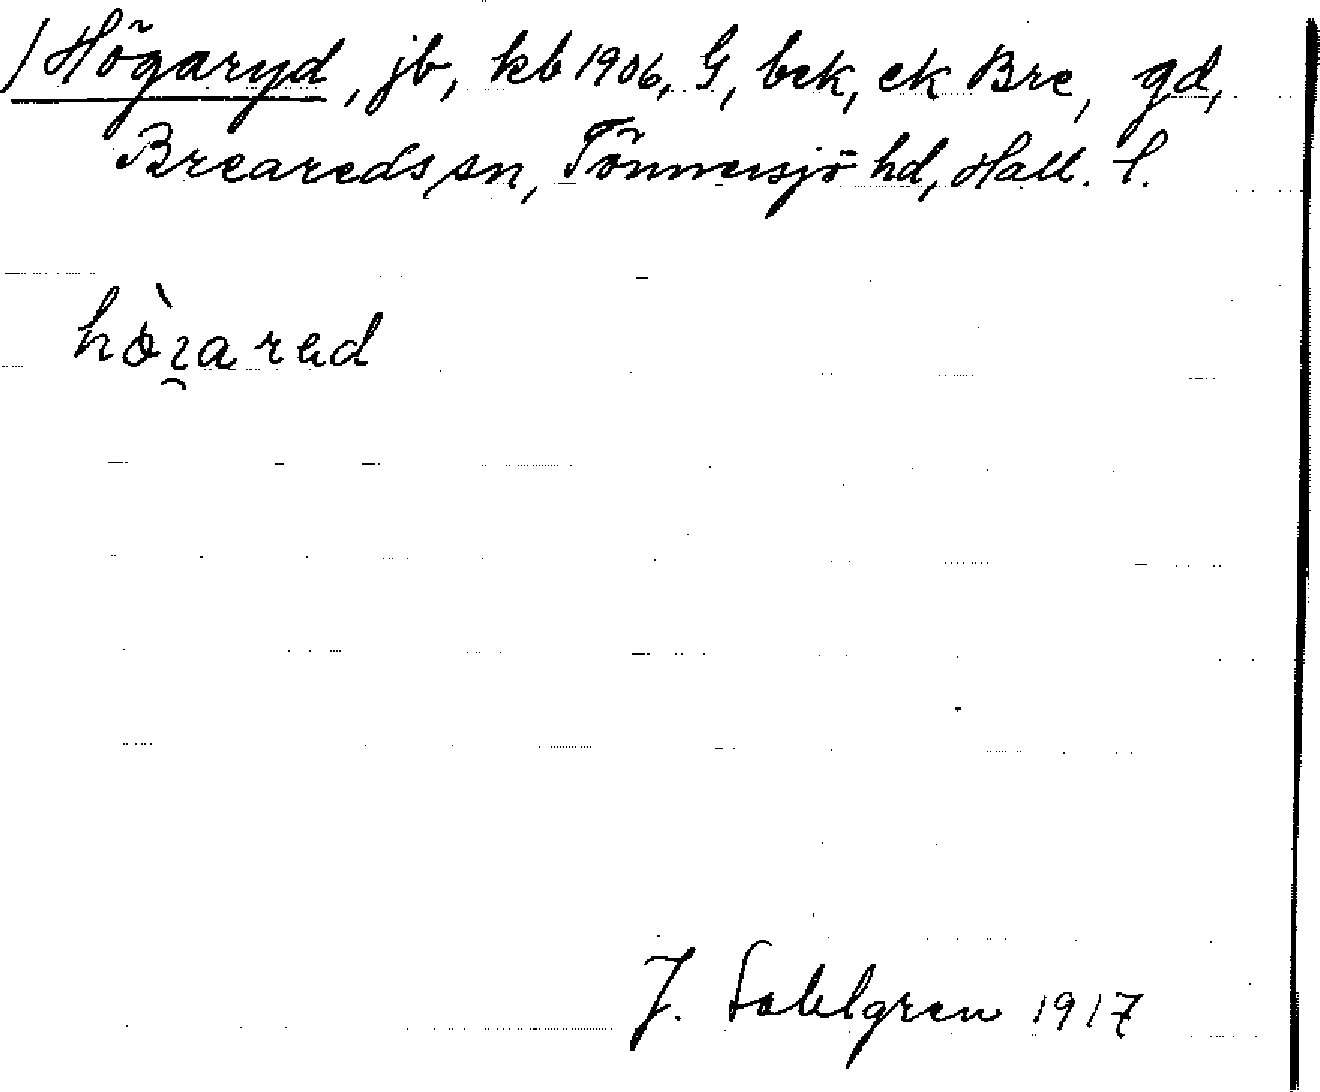 /Högaryd, jb, kb 1906, G, bek, ek Bre, gd,
Breareds sn, Tönnersjö hd, Hall. l.
hòɿ̯ared
J. Sahlgren 1917